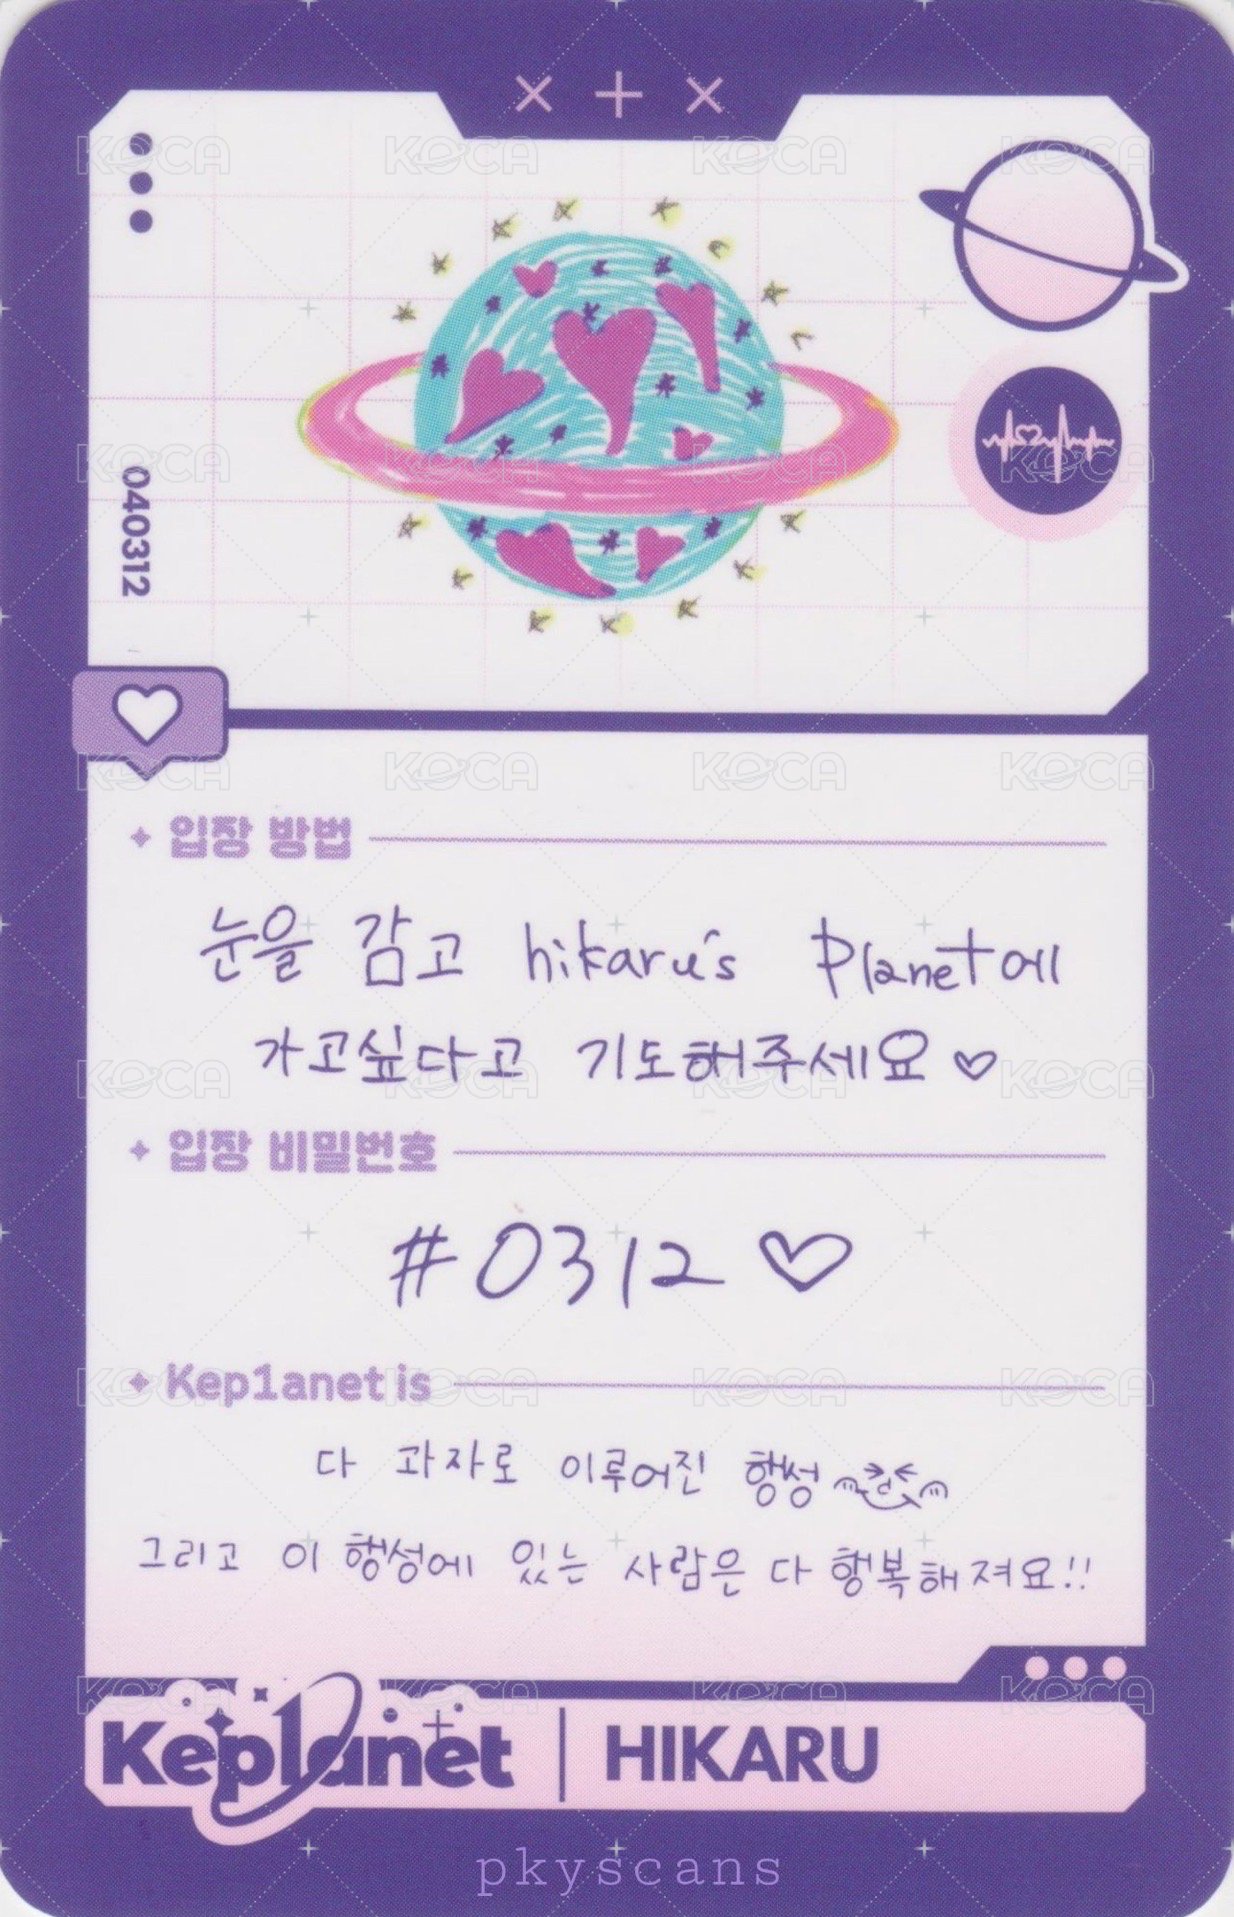 × + ×
040312
입장 방법
눈을 감고 hikaru's planet에
가고싶다고 기도해주세요♡
입장 비밀번호
#0312♡
Kep1anet is
다 과자로 이루어진 행성
그리고 이 행성에 있는 사람은 다 행복해져요!!
Kep1anet | HIKARU
pkyscans
KOCA